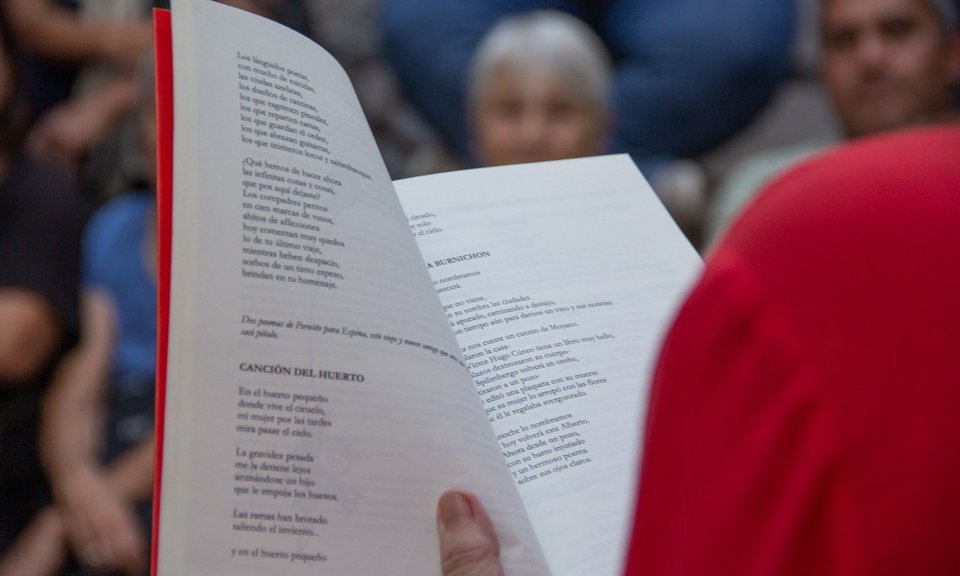 Los lánguidos poetas,
con mucho de suicidas,
las viudas azafatas,
los dueños de cantinas,
los que esgrimen pinceles,
los que reparten cartas,
los que guardan el orden,
los que abrazan guitarras,
los que titiriteros locos y saltimbanquis,
¿Qué hemos de hacer ahora
las infinitas cosas y cosas,
que por aquí dejaste?
Los compadres peritos
en cien marcas de vinos,
ahítos de aflicciones
hoy comentan muy quedos
lo de tu último viaje,
mientras beben despacio,
sorbos de un tinto espeso,
brindan en tu homenaje.
Dos poemas de Perosito para Espina, este viejo y nuevo amigo que
casi pétalo.
CANCIÓN DEL HUERTO
En el huerto pequeño
donde vive el ciruelo,
mi mujer por las tardes
mira pasar el cielo.
La gravidez pesada
me la detiene lejos
acunándose un hijo
que le empuja los huesos.
Las ramas han brotado
saliendo el invierno...
y en el huerto pequeño
ciruelo,
y solo
r el cielo.
A BURNICHON
o nombramos
arecerá.
que no viene,
en su sombra las ciudades
á apurado, caminando a destajo,
on tiempo aún para darnos un vino y sus noticias.
z nos cueste un cuento de Moyano.
laron la casa-
Víctor Hugo Cúneo tiene un libro muy bello,
alazos destrozaron su cuerpo-
Spilimbergo volverá en otoño,
tiraron a un pozo-
editó una plaqueta con su muerte
que su mujer lo arropó con las flores
e él le regalaba avergonzado.
noche lo nombramos
hoy volverá este Alberto.
Ahora desde un pozo,
con su barro injuriado
y un hermoso poema
sobre sus ojos claros.